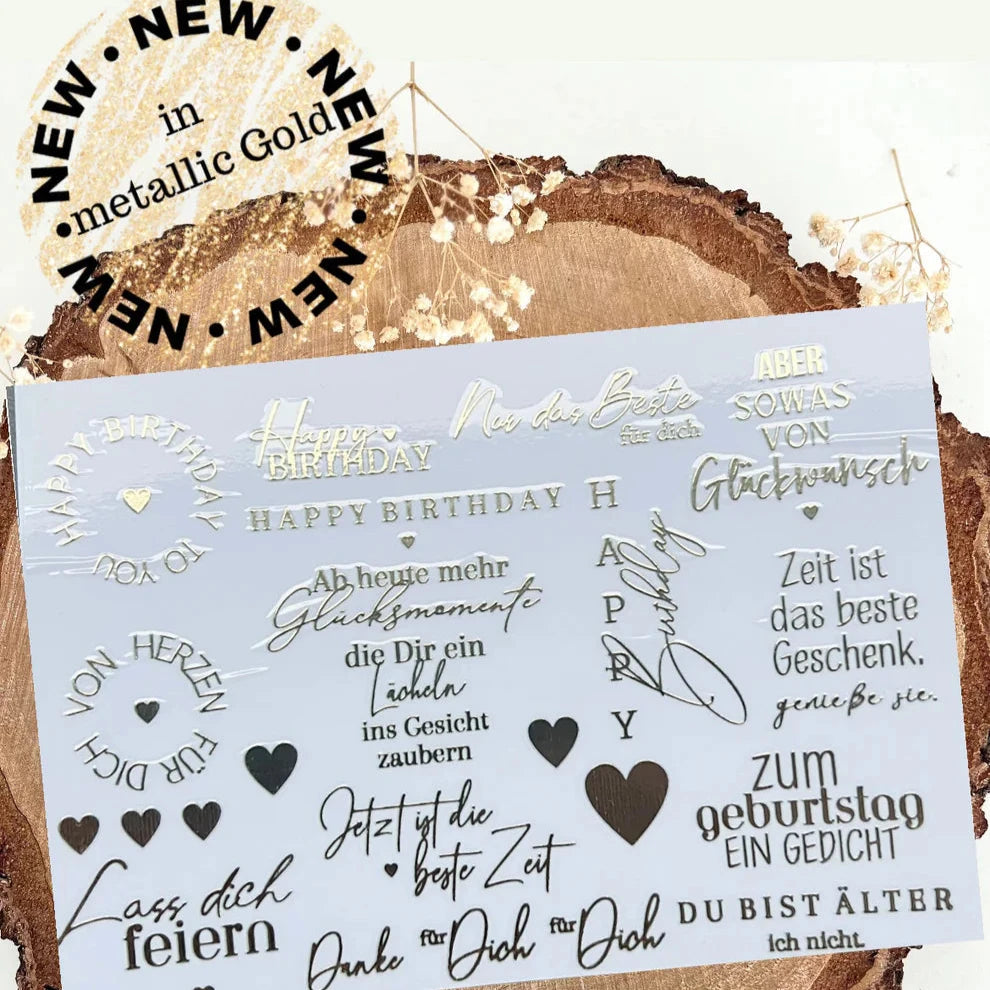 NEW • NEW • NEW • NEW • NEW • NEW • NEW •
in
metallic Gold
HAPPY BIRTHDAY
TO YOU
Happy
BIRTHDAY
Nur das Beste
für dich
ABER
SOWAS
VON
Glückwunsch
HAPPY BIRTHDAY
HAPPY
Birthday
Ab heute mehr
Glücksmomente
die Dir ein
Lächeln
ins Gesicht
zaubern
Zeit ist
das beste
Geschenk.
genieße sie.
VON HERZEN
FÜR DICH
Jetzt ist die
beste Zeit
zum
geburtstag
EIN GEDICHT
DU BIST ÄLTER
ich nicht.
Lass dich
feiern
Danke
für Dich
für Dich